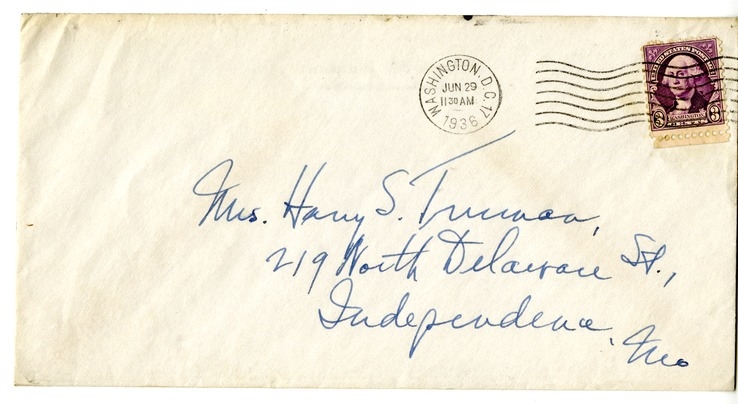 WASHINGTON, D.C. 17
JUN 29
11 30 AM
1936
UNITED STATES POSTAGE
3 WASHINGTON 3
Mrs. Harry S. Truman,
219 North Delaware St.,
Independence,
Mo